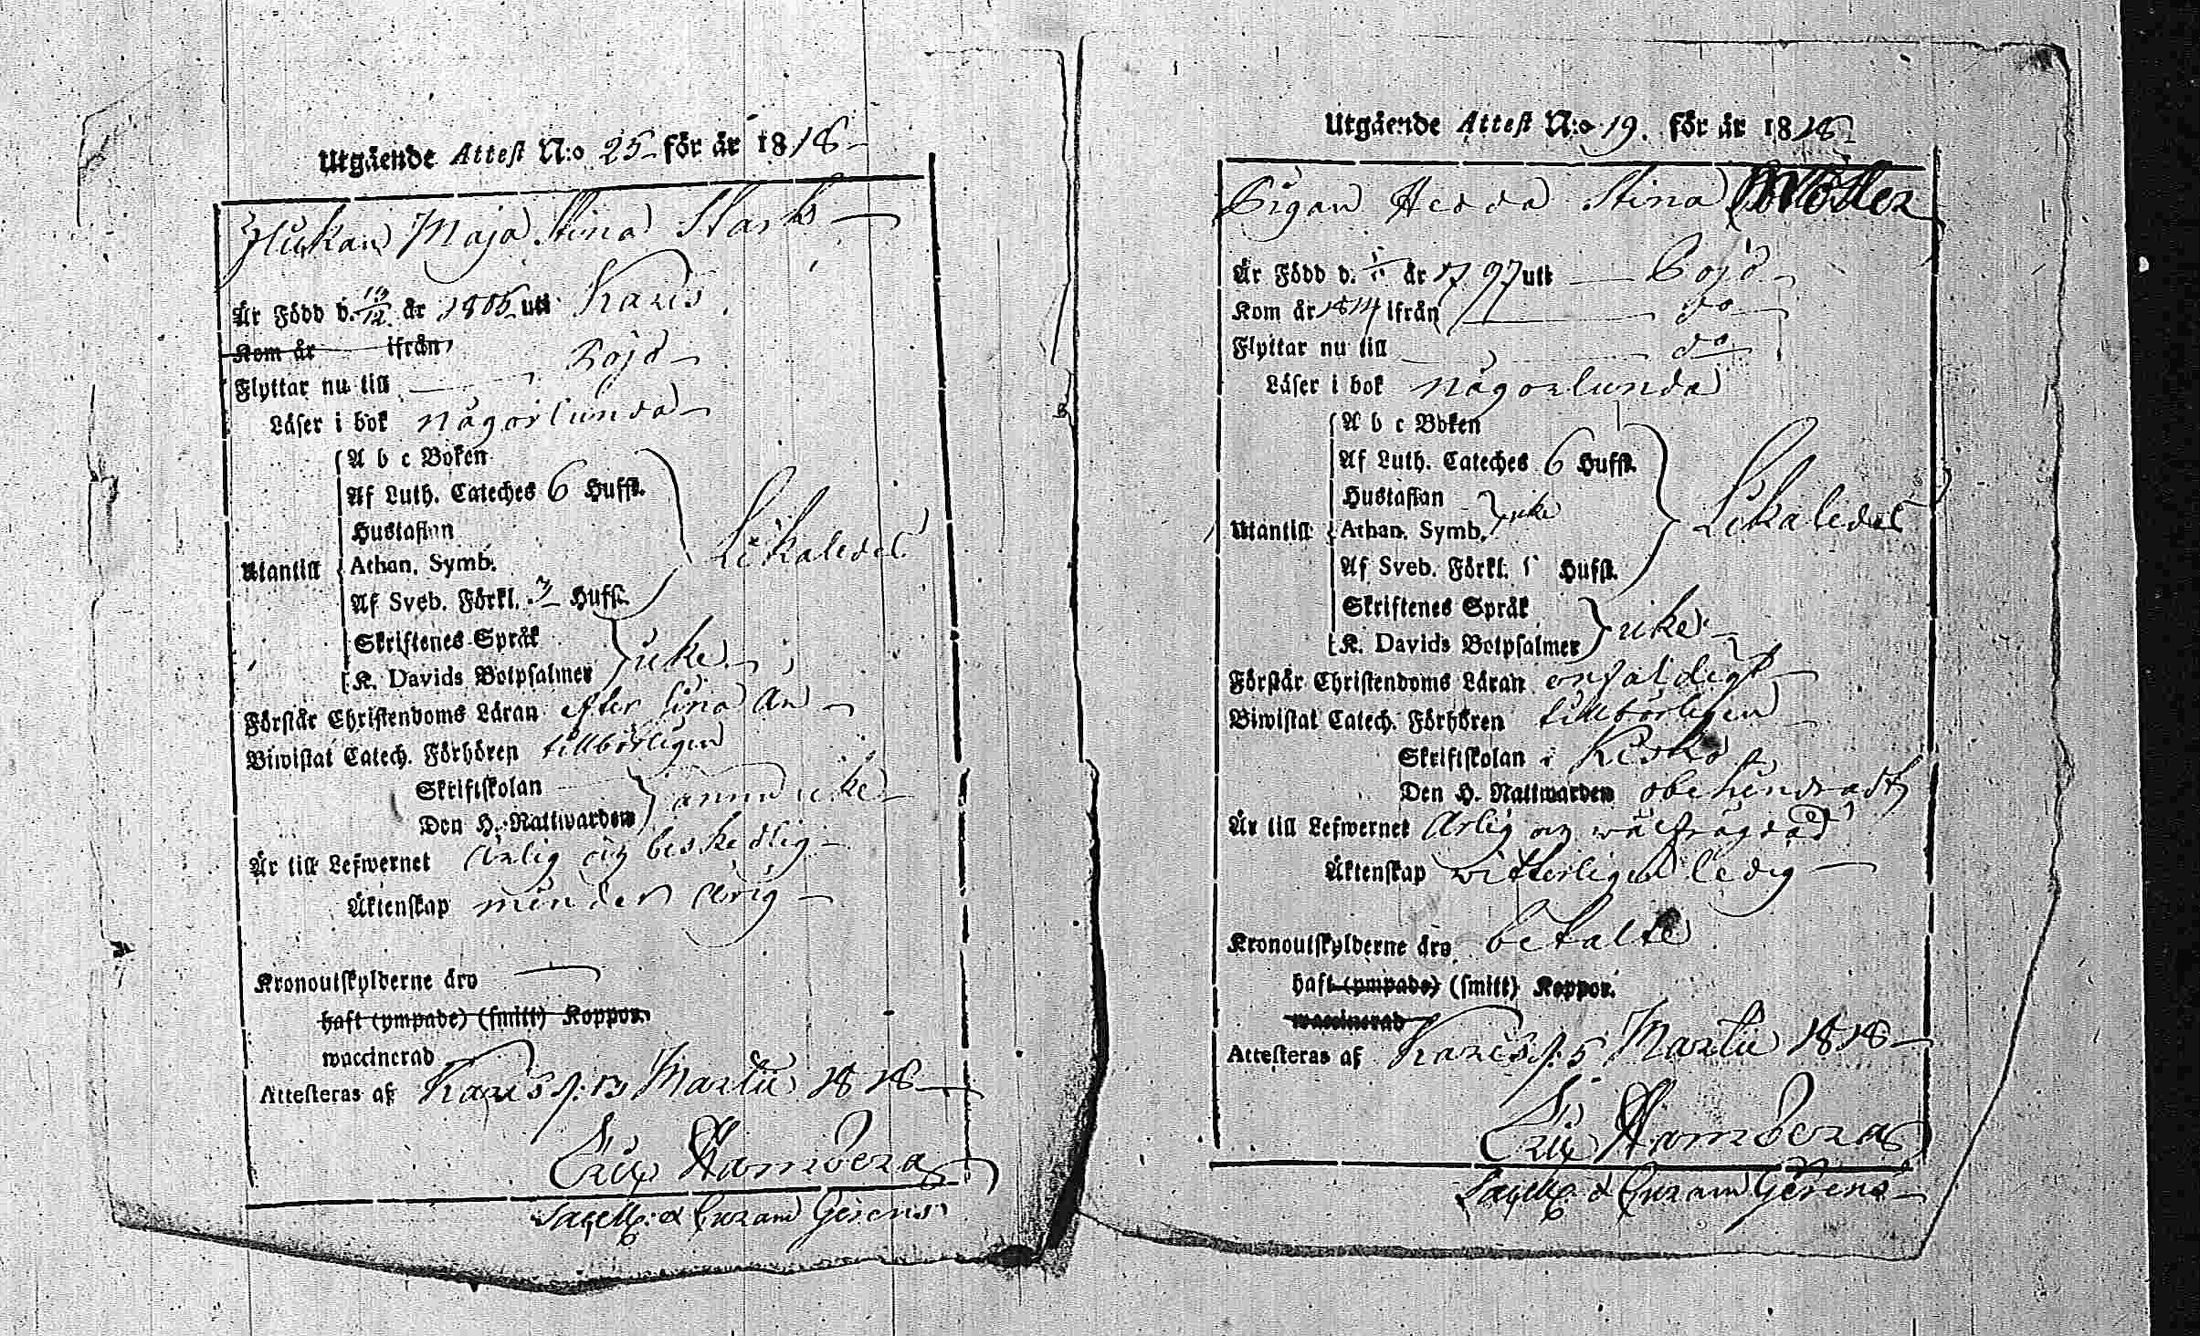 Utgående Attest N:o 25 för år 1818
Flickan Maja Stina Stark
Är Född d. 19/12 år 1805 uti Karis
Kom år ifrån
Flyttar nu till Bojo
Läser i bok någorlunda
A b c Boken
Af Luth. Cateches 6 Hufst.
Hustaflan
Utantill Athan. Symb. Likaledes
Af Sveb. Förkl. 3 Hufst.
Skriftenes Språk
K. Davids Botpsalmer icke
Förstår Christendoms Läran efter sina år
Biwistat Catech. Förhören tillbörligen
Skriftskolan
Den H. Nattwarden ännu icke
Är till Lefwernet ärlig och beskedlig
Äktenskap minderårig
Kronoutskylderne äro
haft (ympade) (smitt) Koppor.
waccinerad
Attesteras af Karis p. 13 Martii 1818
Eric
Sacell. & Curam Gerens
Utgående Attest N:o 19. för år 1818
Pigan Hedda Stina
Är Född d. år 1797 uti Bojo
Kom år 1814 ifrån do
Flyttar nu till do
Läser i bok någorlunda
A b c Boken
Af Luth. Cateches 6 Hufst.
Hustaflan
Utantill Athan. Symb. icke Likaledes
Af Sveb. Förkl. Hufst.
Skriftenes Språk
K. Davids Botpsalmer icke
Förstår Christendoms Läran enfaldigt
Biwistat Catech. Förhören tillbörligen
Skriftskolan i Kisko
Den H. Nattwarden obehindradt
Är till Lefwernet Ärlig och wälfrägdad
Äktenskap witterligen ledig
Kronoutskylderne äro betalte
haft (ympade) (smitt) Koppor.
waccinerad
Attesteras af Karis p. 5 Martii 1818
Eric
Sacell. & Curam Gerens